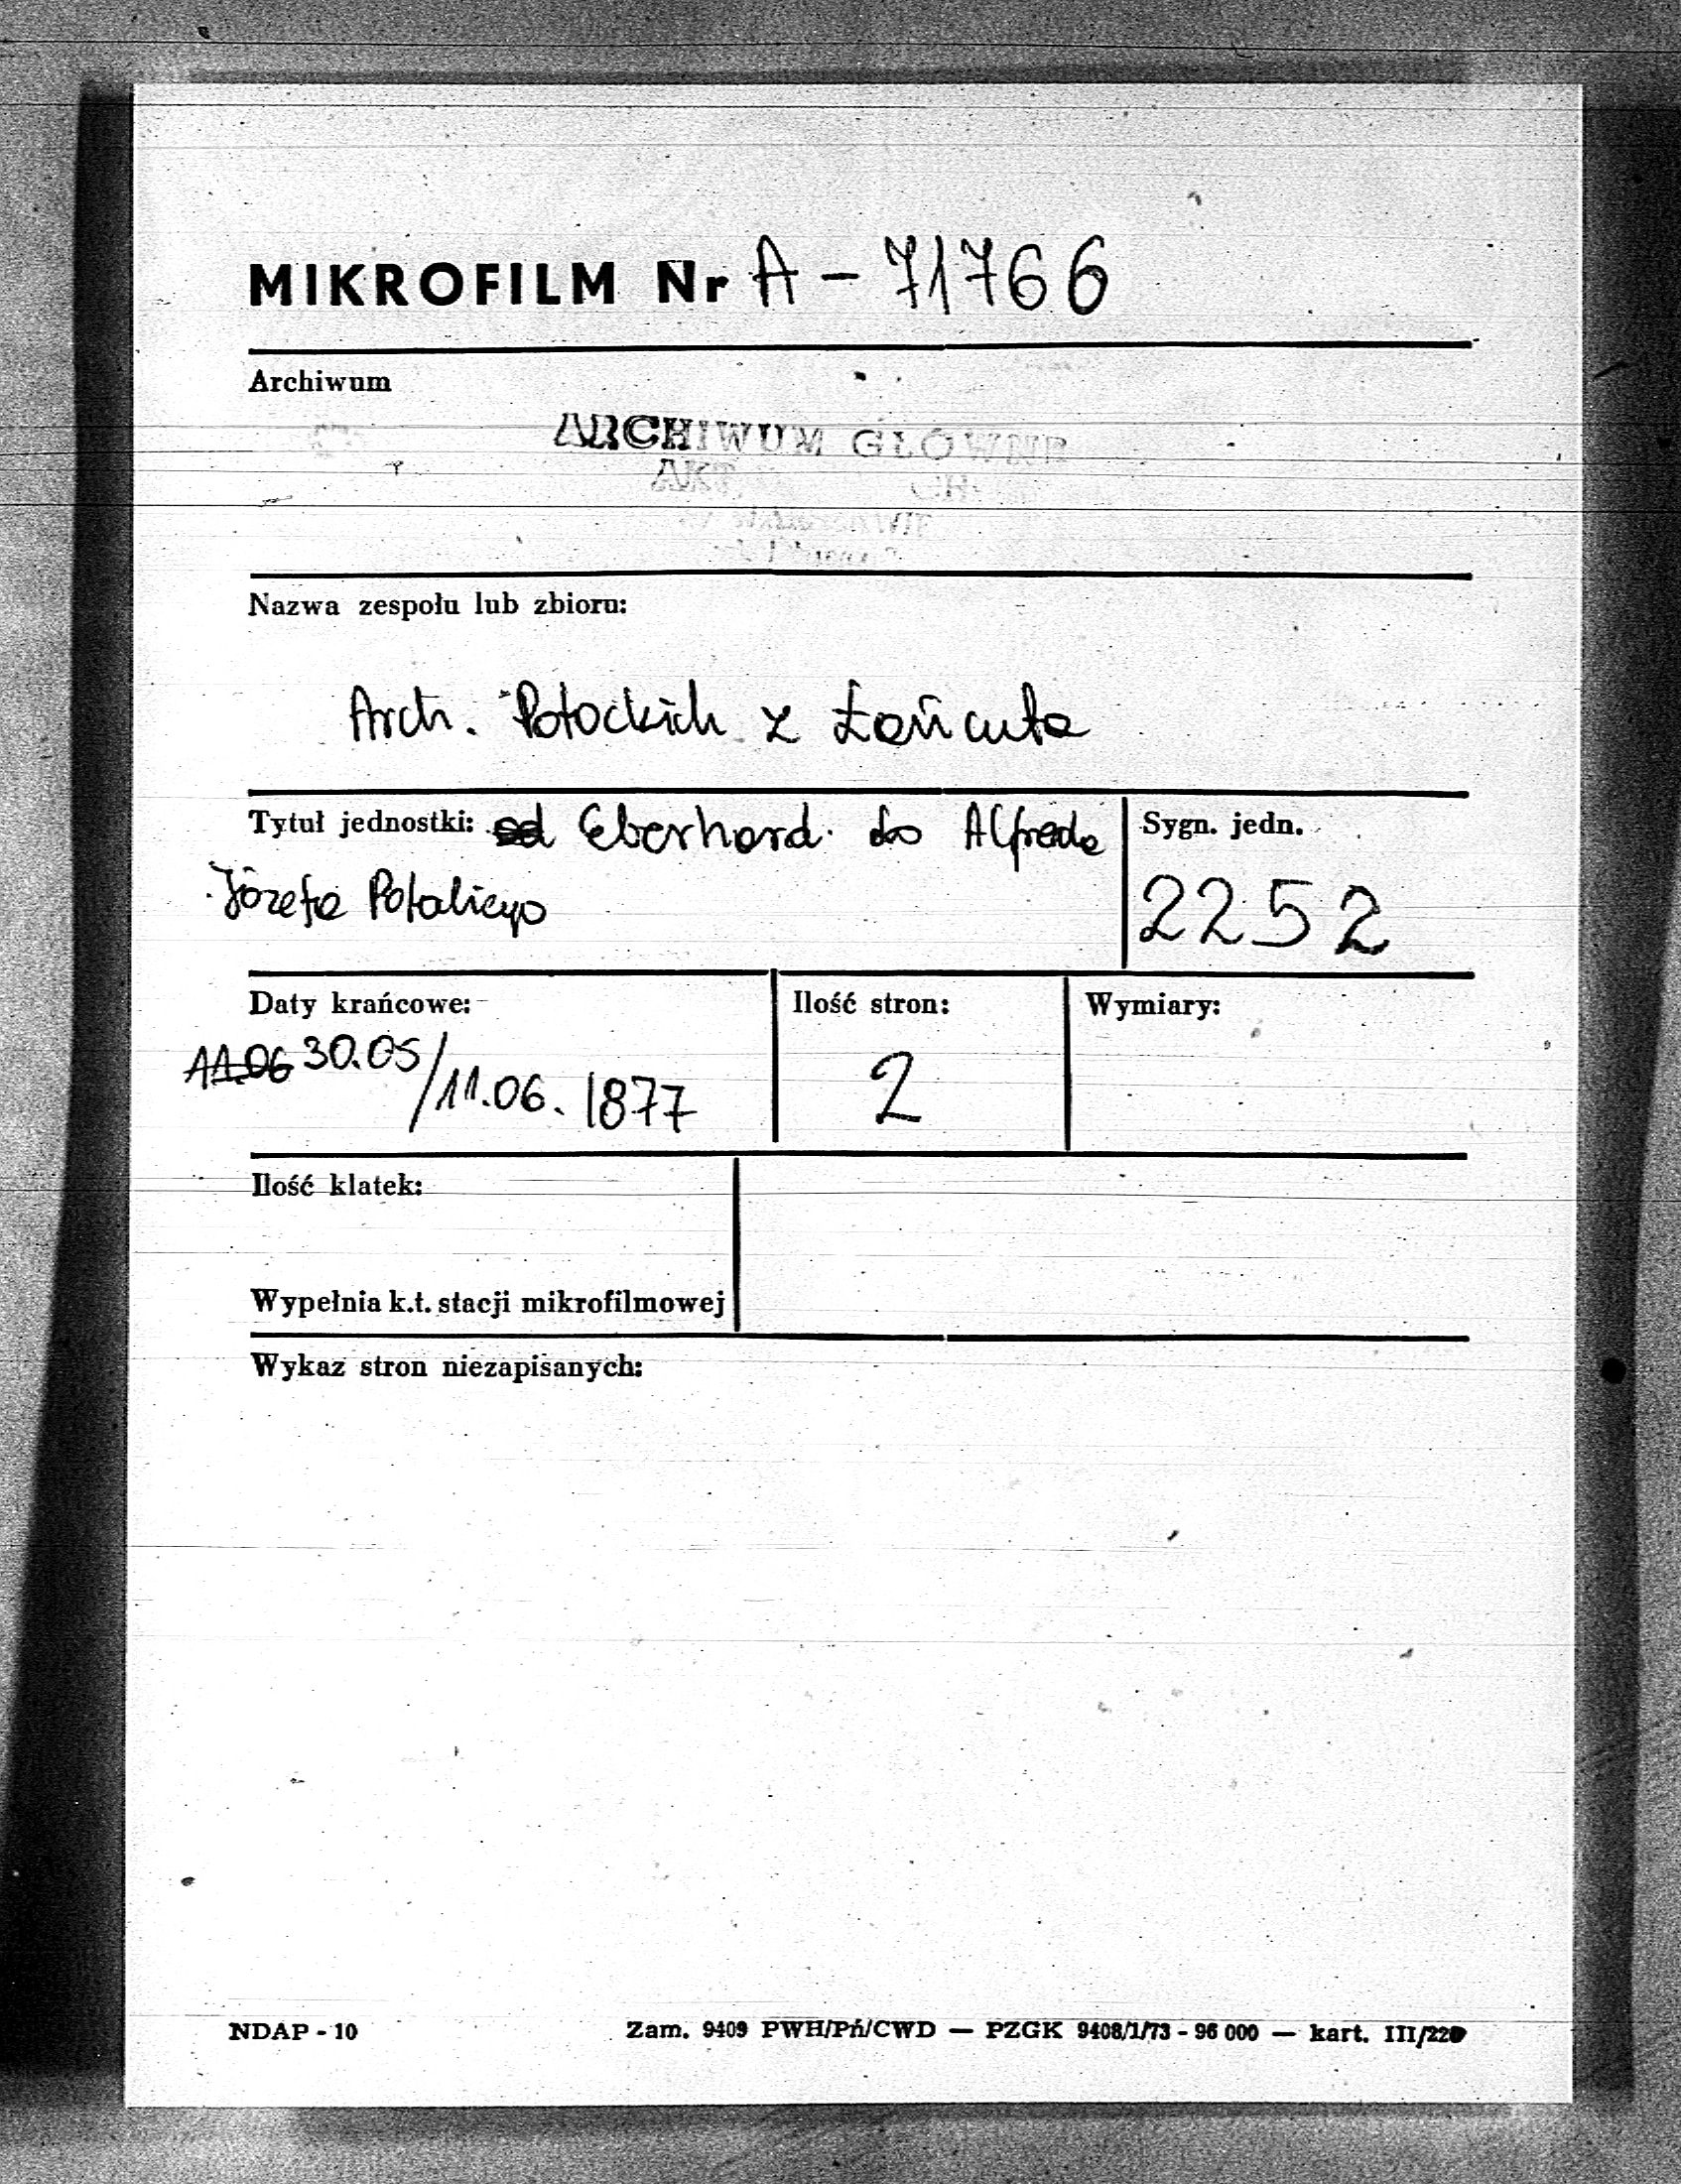 MIKROFILM Nr A - 71766
Archiwum
ARCHIWUM GŁÓWNE
AKT
Nazwa zespołu lub zbioru:
Arch. Potockich z Łańcuta
Tytuł jednostki: od Eberhard do Alfreda
Józefa Potockiego
Sygn. jedn.
2252
Daty krańcowe:
11.06 30.05/11.06. 1877
Ilość stron:
2
Wymiary:
Ilość klatek:
Wypełnia k.t. stacji mikrofilmowej
Wykaz stron niezapisanych:
NDAP - 10
Zam. 9409 PWH/Pń/CWD — PZGK 9408/1/73 - 96 000 — kart. III/220